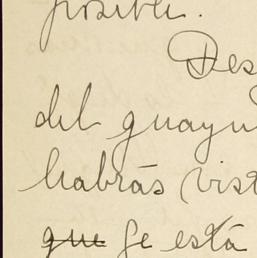 posible.
Des
del guayu
habrás vist
~~que~~ se está